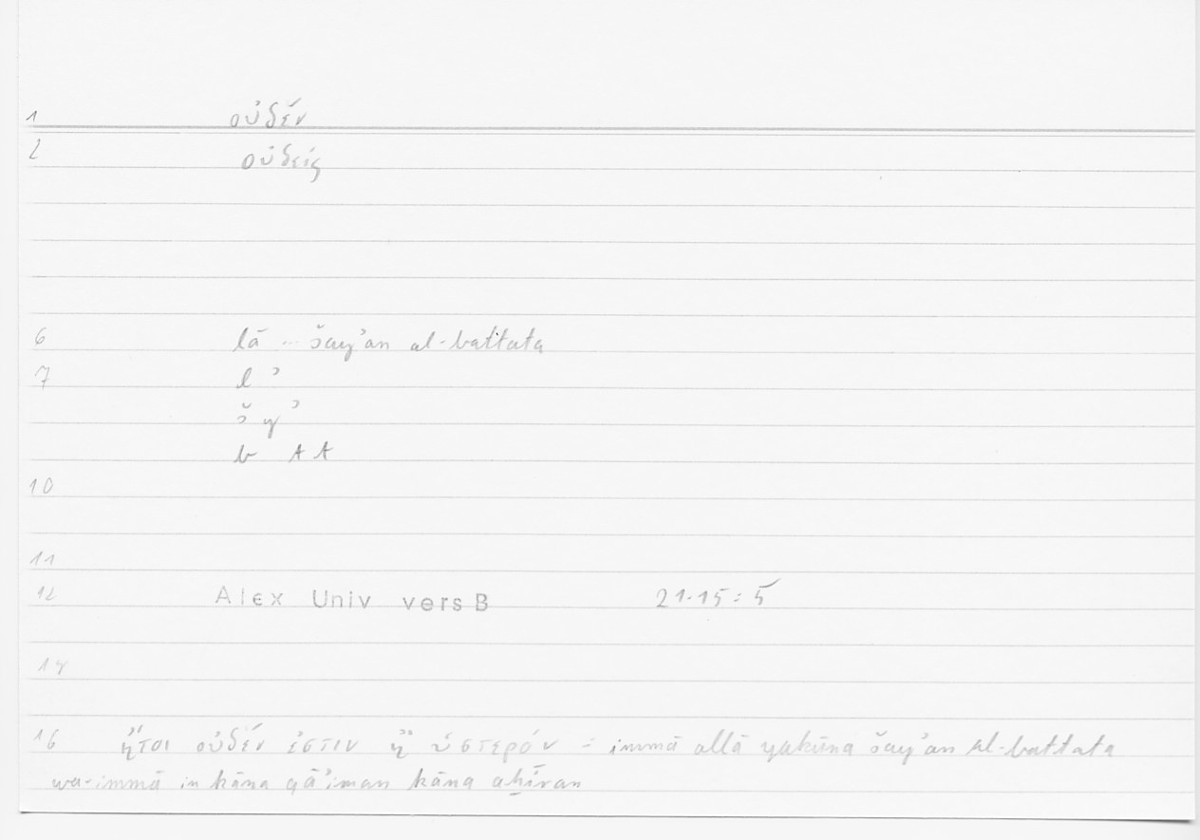 1 οὐδέν
2 οὐδείς
6 lā ... šayʾan al-battata
7 l ʾ
š y ʾ
b t t
10
11
12 Alex Univ vers B 21.15 : 5
14
16 ἤτοι οὐδέν ἐστιν ἢ ὕστερόν = immā allā yakūna šayʾan al-battata
wa-immā in kāna qāʾiman kāna aḫīran